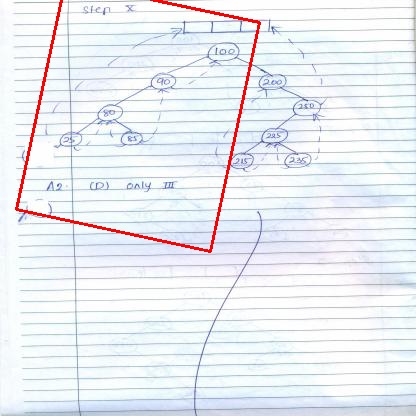 step x
100
90 200
80 250
25 85 225
215 235
A2. (D) only III